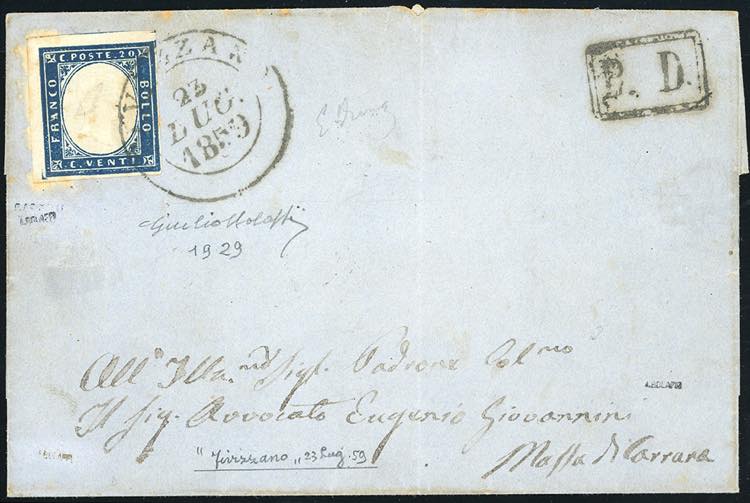 C. POSTE. 20
FRANCO
BOLLO
C. VENTI
23
LUG.
1859
P. D.
1929
All' Illa.mo Sigr. Padrone Col.mo
Il Sig. Avvocato Eugenio Giovannini
Massa di Carrara
"Fivizzano„ 23 Lug. 59